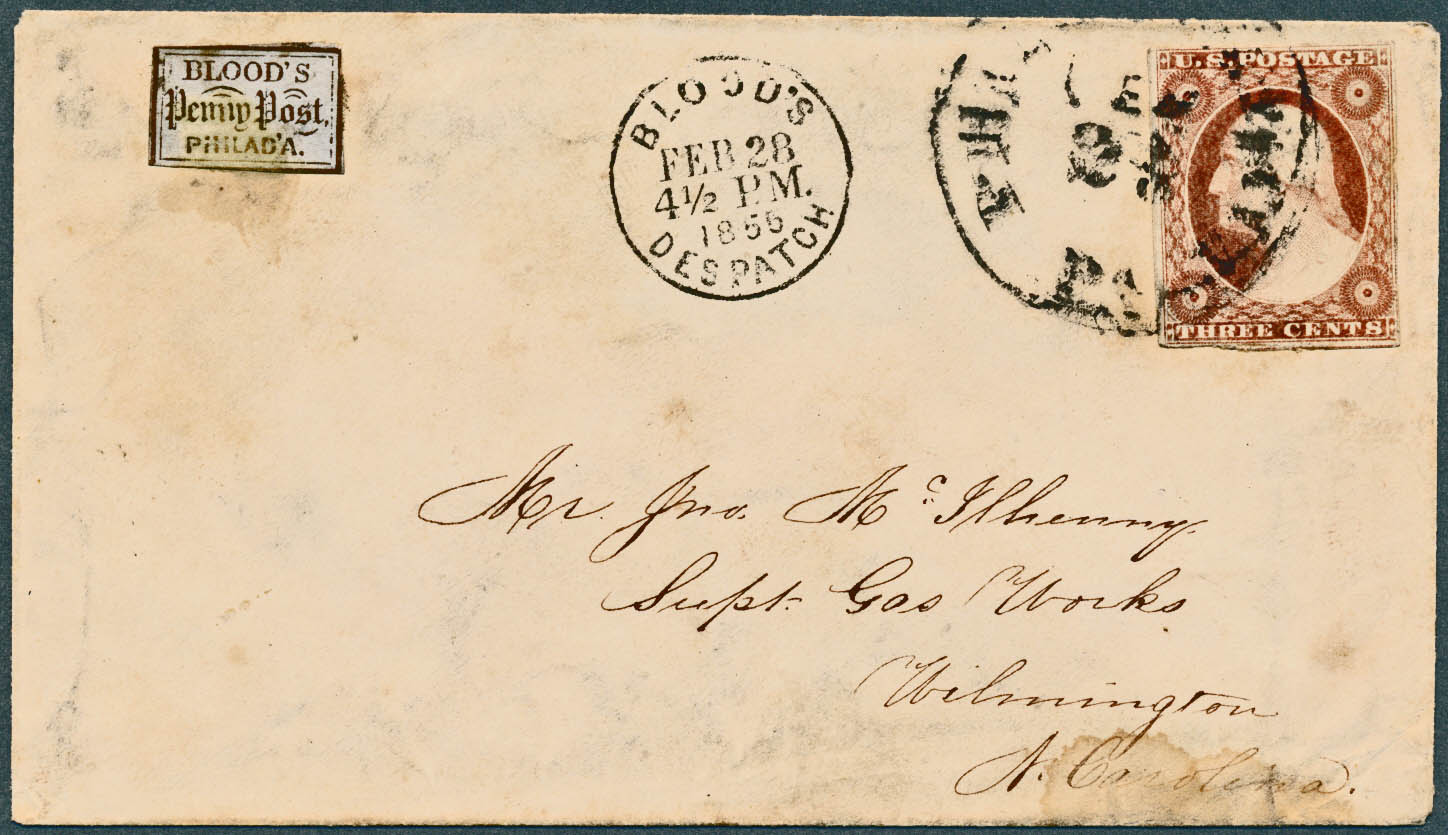 BLOOD'S
Penny Post,
PHILAD'A.
BLOOD'S
FEB 28
4½ P.M.
1855
DESPATCH
PHILADELPHIA
FEB
28
Pa
U.S. POSTAGE
THREE CENTS
Mr. Jno. Mc Ilhenny
Supt. Gas Works
Wilmington
N. Carolina.